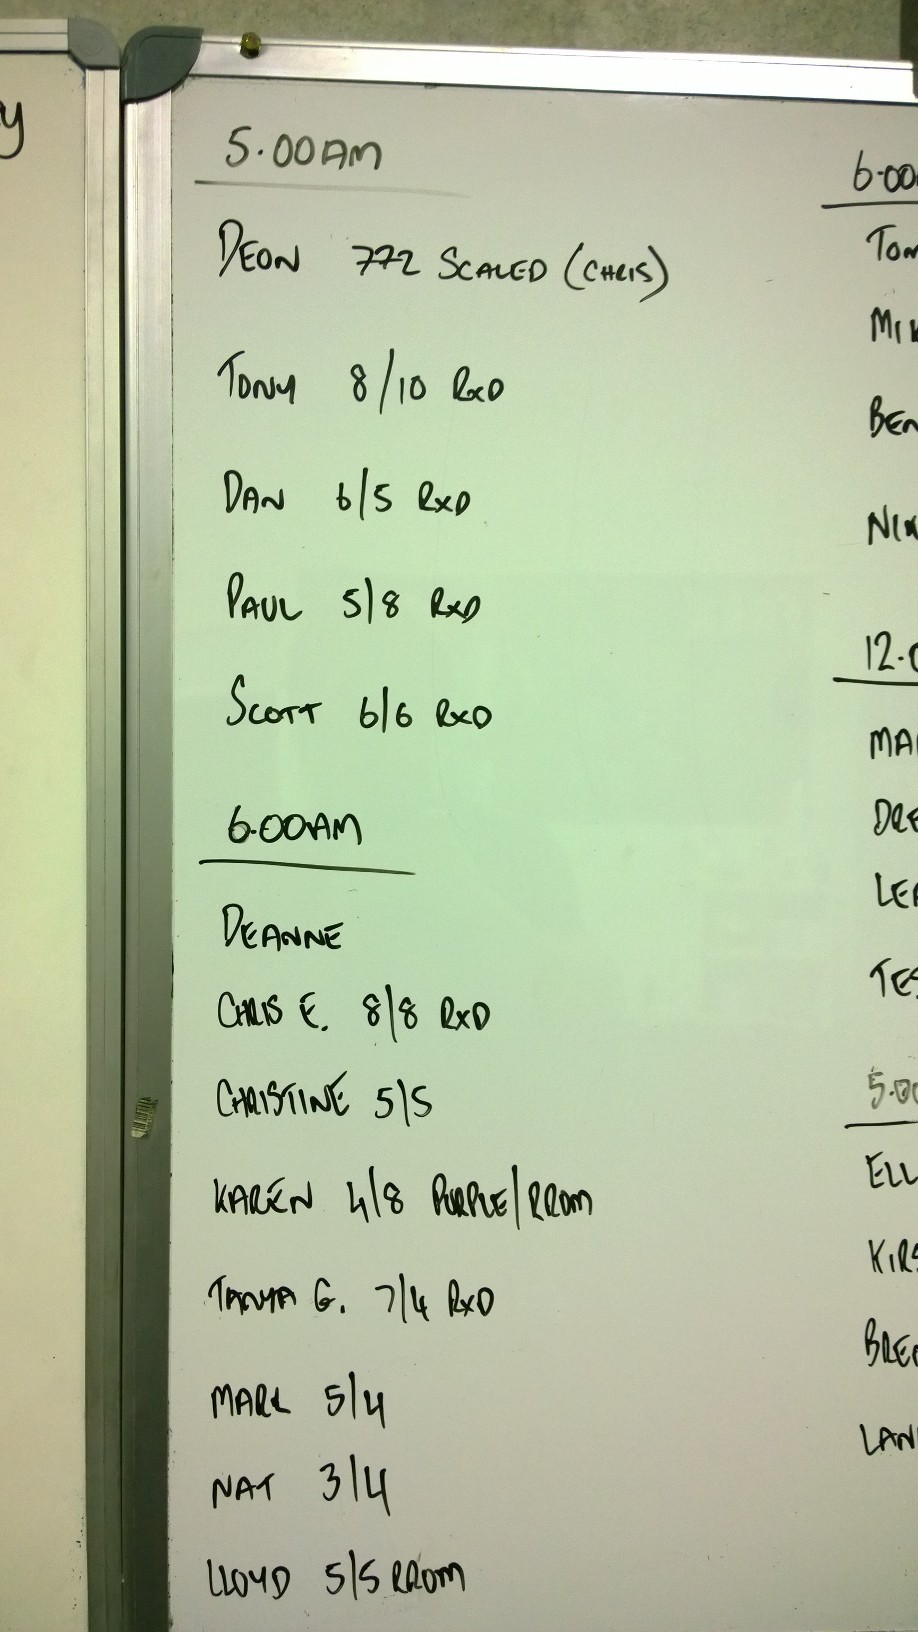 y
5.00AM
DEON 772 SCALED (CHRIS)
TONY 8/10 RXD
DAN 6/5 RXD
PAUL 5/8 RXD
SCOTT 6/6 RXD
6.00AM
DEANNE
CHRIS E. 8/8 RXD
CHRISTINE 5/5
KAREN 4/8 PURPLE/RROM
TANYA G. 7/4 RXD
MARK 5/4
NAT 3/4
LLOYD 5/5 RROM
6.00
TON
MIK
BEN
NIK
12.0
MA
DRE
LEA
TES
5.00
ELL
KIRS
BRE
LAN